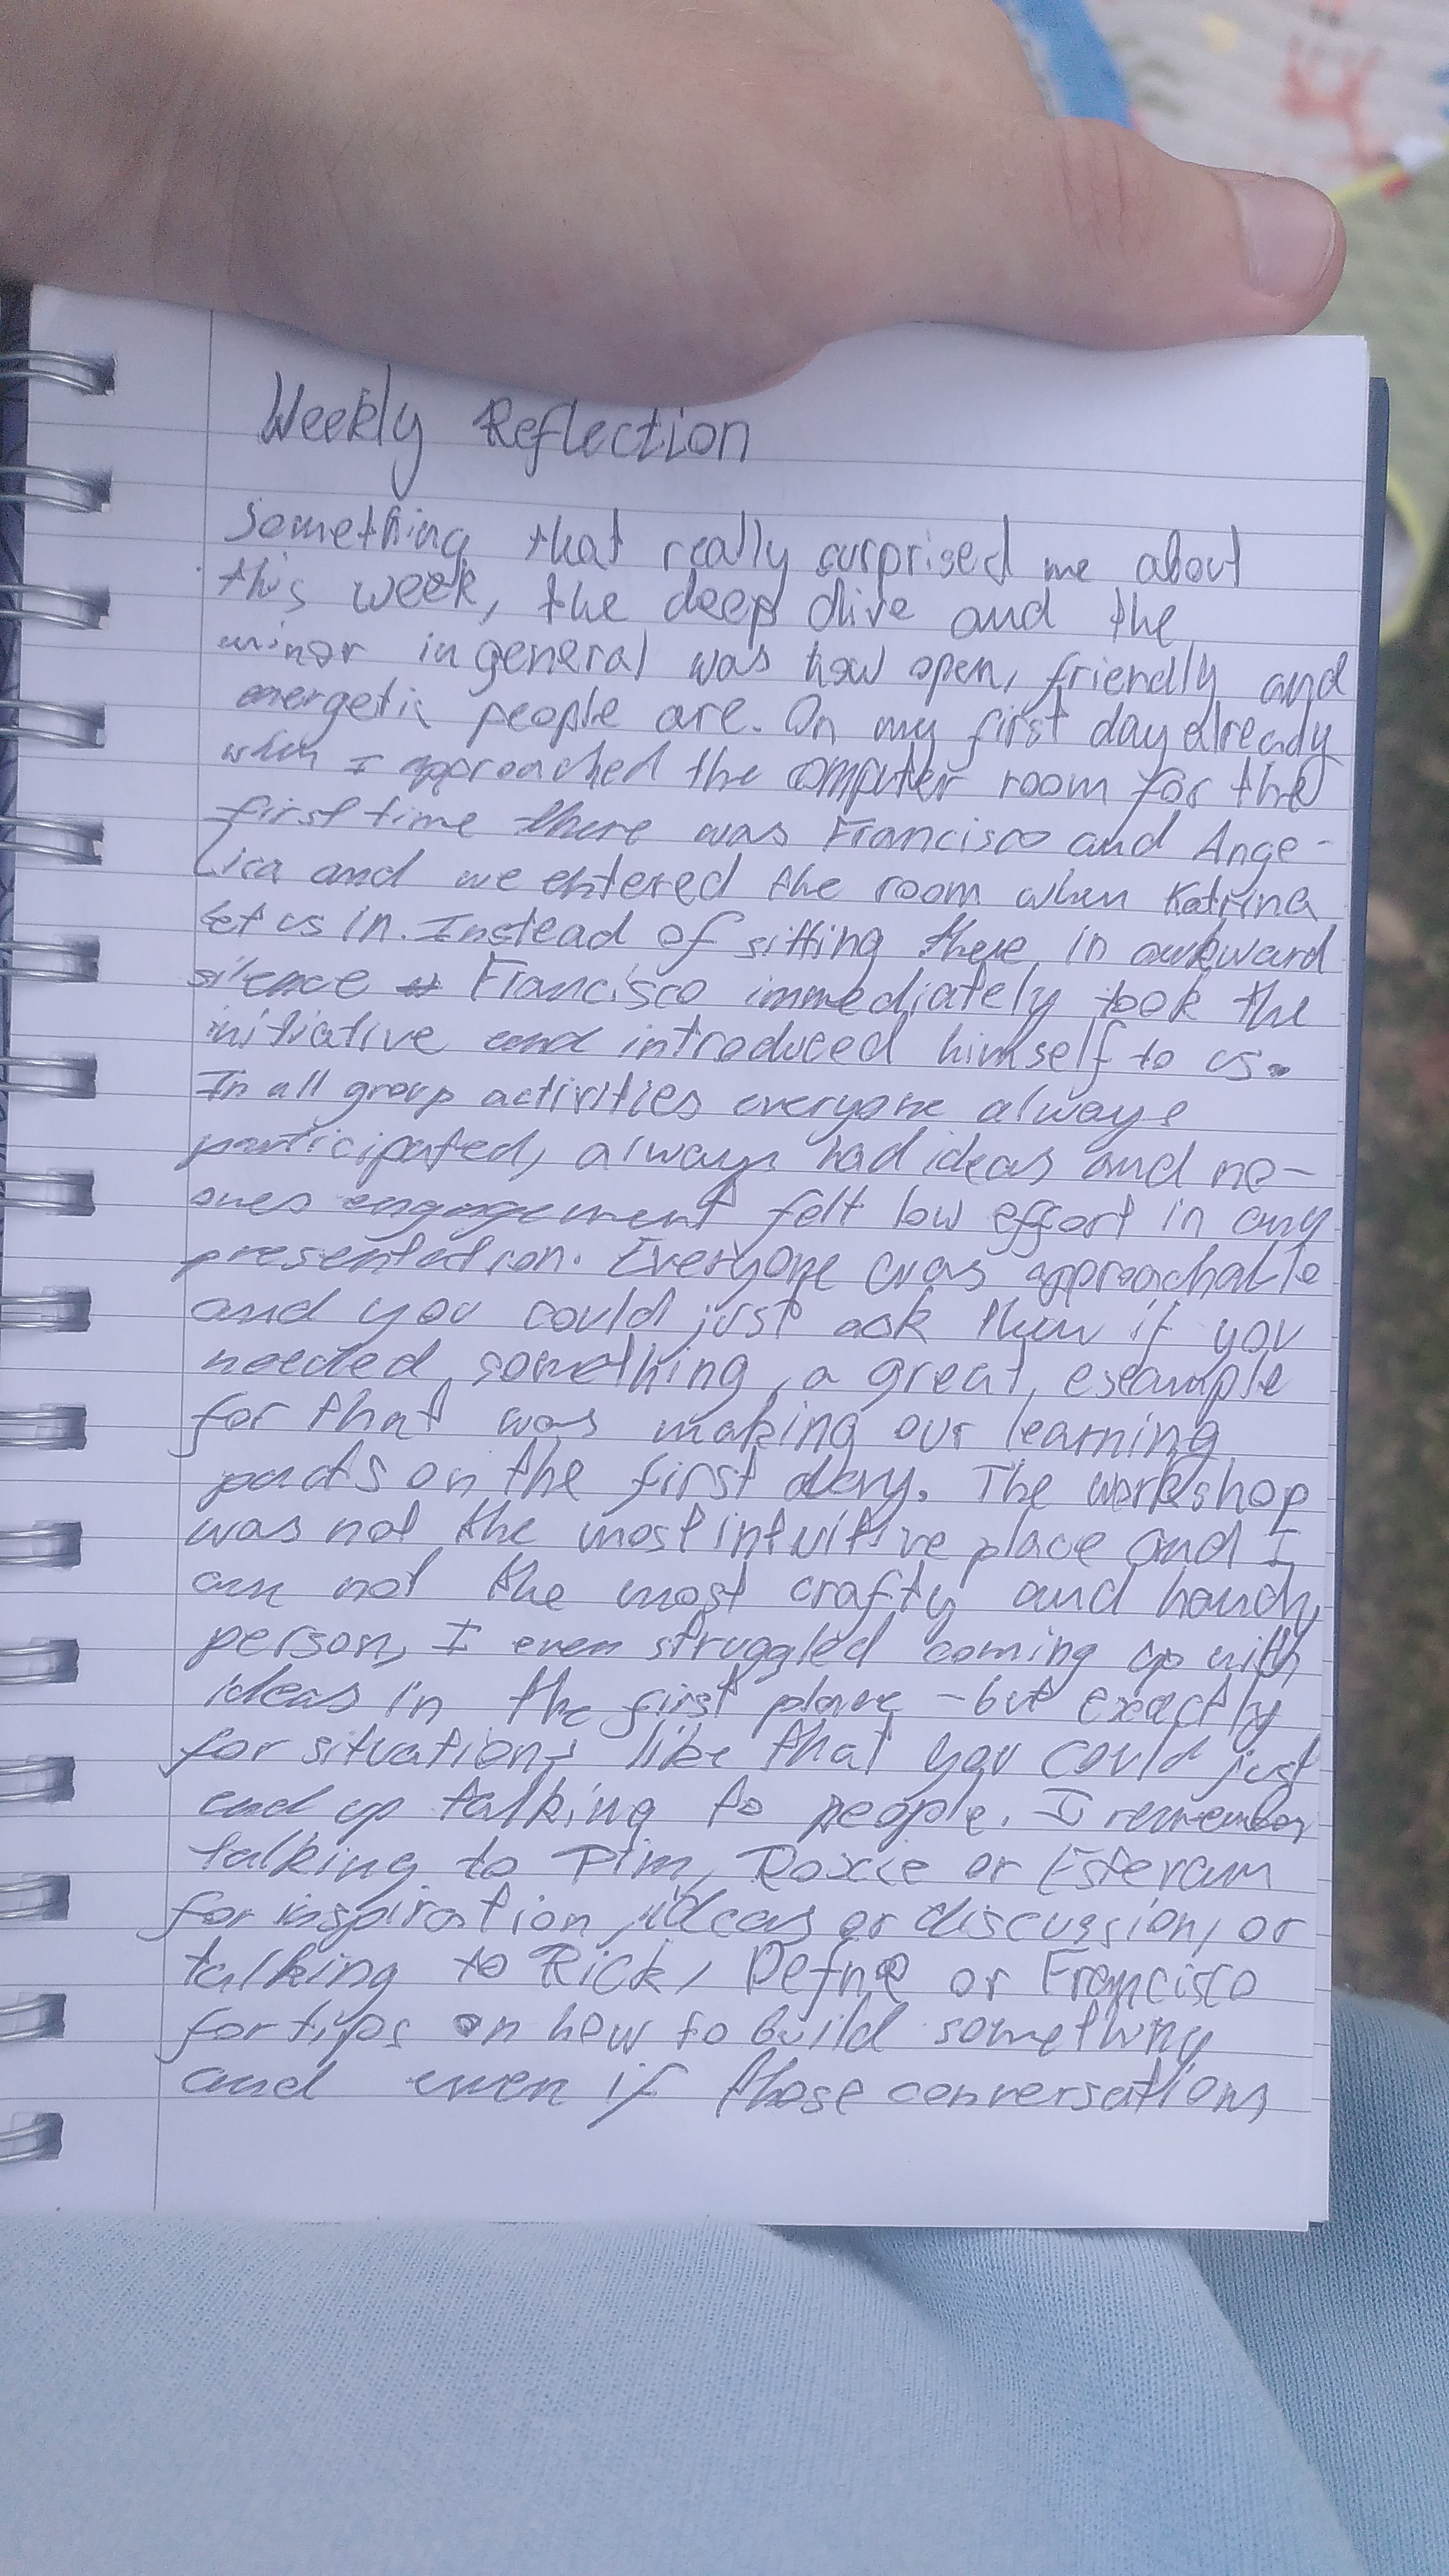 Weekly Reflection
Something that really surprised me about
this week, the deep dive and the
minor in general was how open, friendly and
energetic people are. On my first day already
when I approached the computer room for the
first time there was Francisco and Ange-
lica and we entered the room when Katrina
let us in. Instead of sitting there in awkward
silence Francisco immediately took the
initiative and introduced himself to us.
In all group activities everyone always
participated, always had ideas and no-
ones engagement felt low effort in any
presentation. Everyone was approachable
and you could just ask them if you
needed something, a great example
for that was making our learning
on the first day. The workshop
was not the most intuitive place and I
am not the most crafty and handy
person, I even struggled coming up with
ideas in the first place - but exactly
for situations like that you could just
end up talking to people. I remember
talking to Pim, Roxie or Estevam
for inspiration, ideas or discussion, or
talking to Rick, Defne or Francisco
for tips on how to build something
and even if those conversations